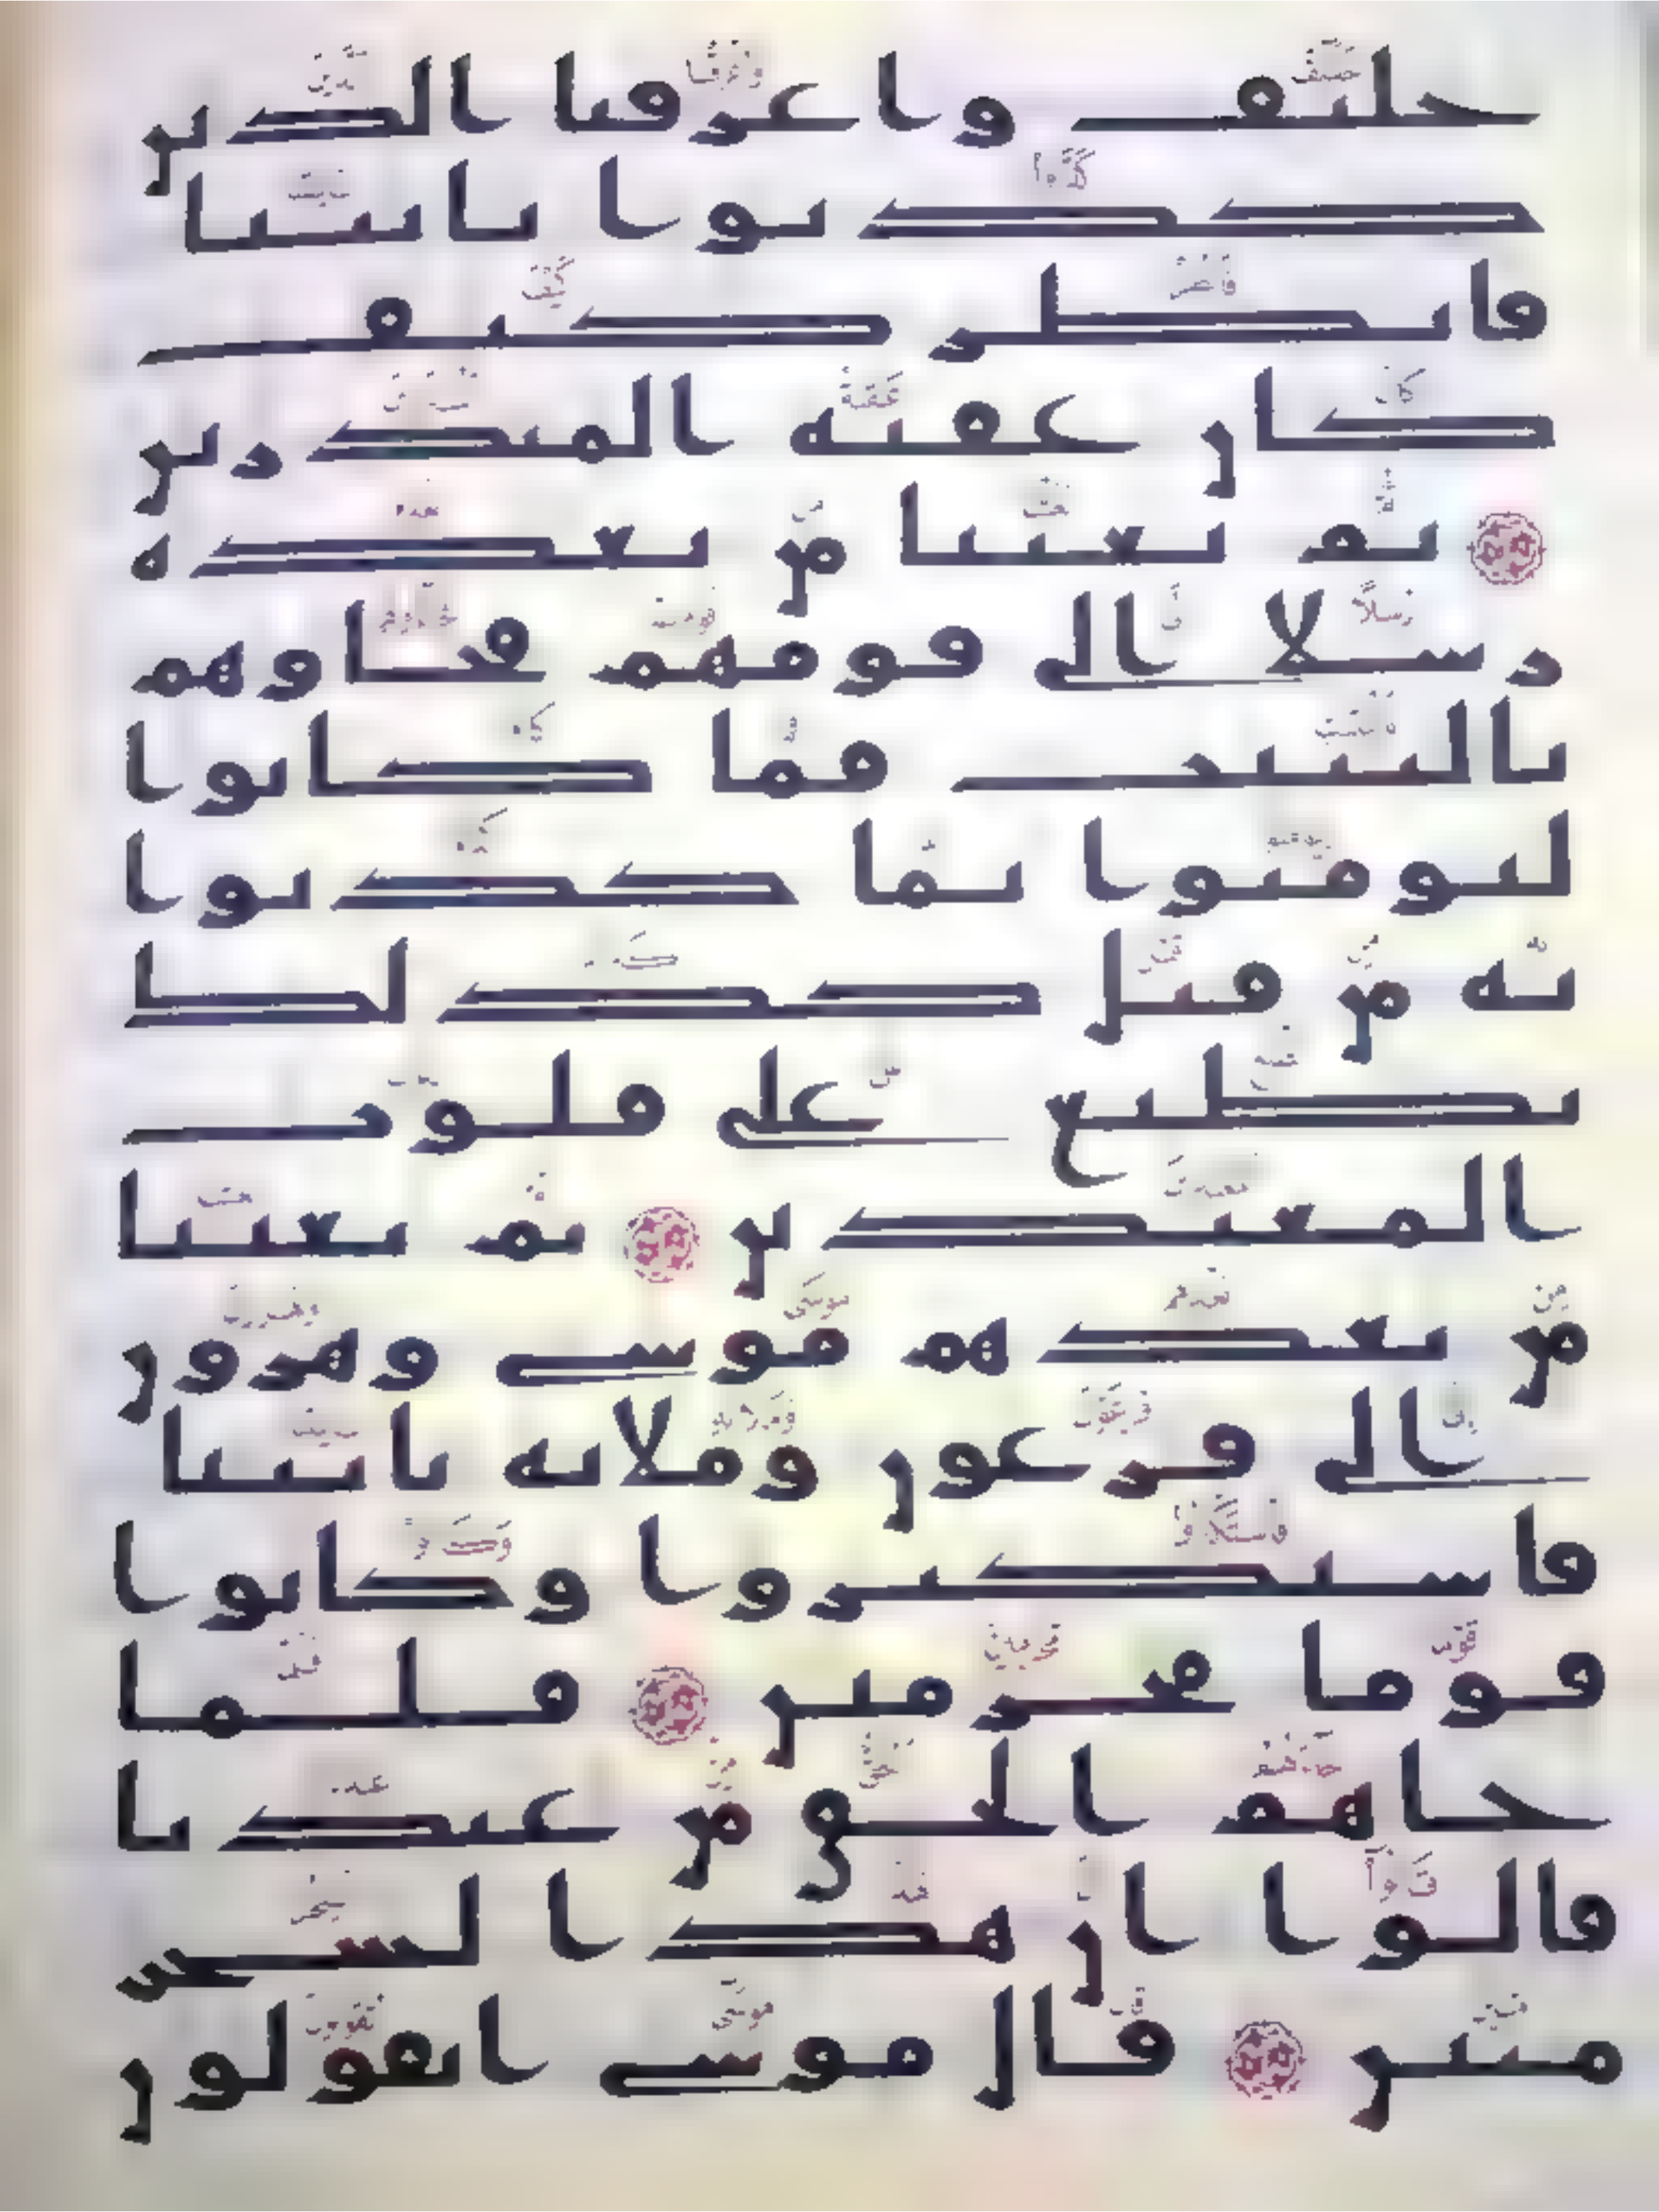 خلئف واغرقنا الذين
كذبوا بايتنا
فانظر كيف
كان عقبة المنذرين
ثم بعثنا من بعده
رسلا الى قومهم فجاوهم
بالبينت فما كانوا
ليومنوا بما كذبوا
به من قبل كذلك
نطبع على قلوب
المعتدين ثم بعثنا
من بعدهم موسى وهرون
الى فرعون وملايه بايتنا
فاستكبروا وكانوا
قوما مجرمين فلما
جاهم الحق من عندنا
قالوا ان هذا لسحر
مبين قال موسى اتقولون